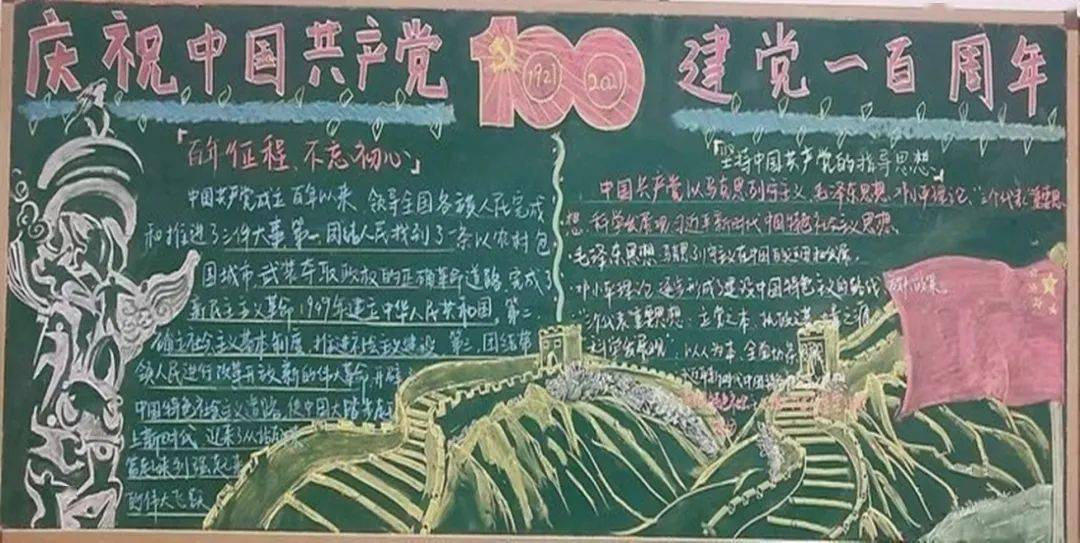 庆祝中国共产党
100
1921 2021
建党一百周年
「百年征程、不忘初心」
中国共产党成立百年以来、领导全国各族人民完成
和推进了三件大事 第一、团结人民找到了一条以农村包
围城市、武装夺取政权的正确革命道路、完成
新民主主义革命 1949年建立中华人民共和国、第二、
确立社会主义基本制度 推进社会主义建设 第三、团结带
领人民进行改革开放新的伟大革命 开辟
中国特色社会主义道路、使中国大踏步
上新时代 迎来了从站起来
富起来到强起来
的伟大飞跃
「坚持中国共产党的指导思想」
中国共产党以马克思列宁主义、毛泽东思想、邓小平理论、"三个代表"重要思
想、科学发展观、习近平新时代中国特色社会主义思想
·毛泽东思想 马克思列宁主义在中国的运用和发展。
·邓小平理论 逐步形成了建设中国特色社会主义的路线
·"三个代表"重要思想: 立党之本、执政
·"科学发展观": 以人为本、全面协